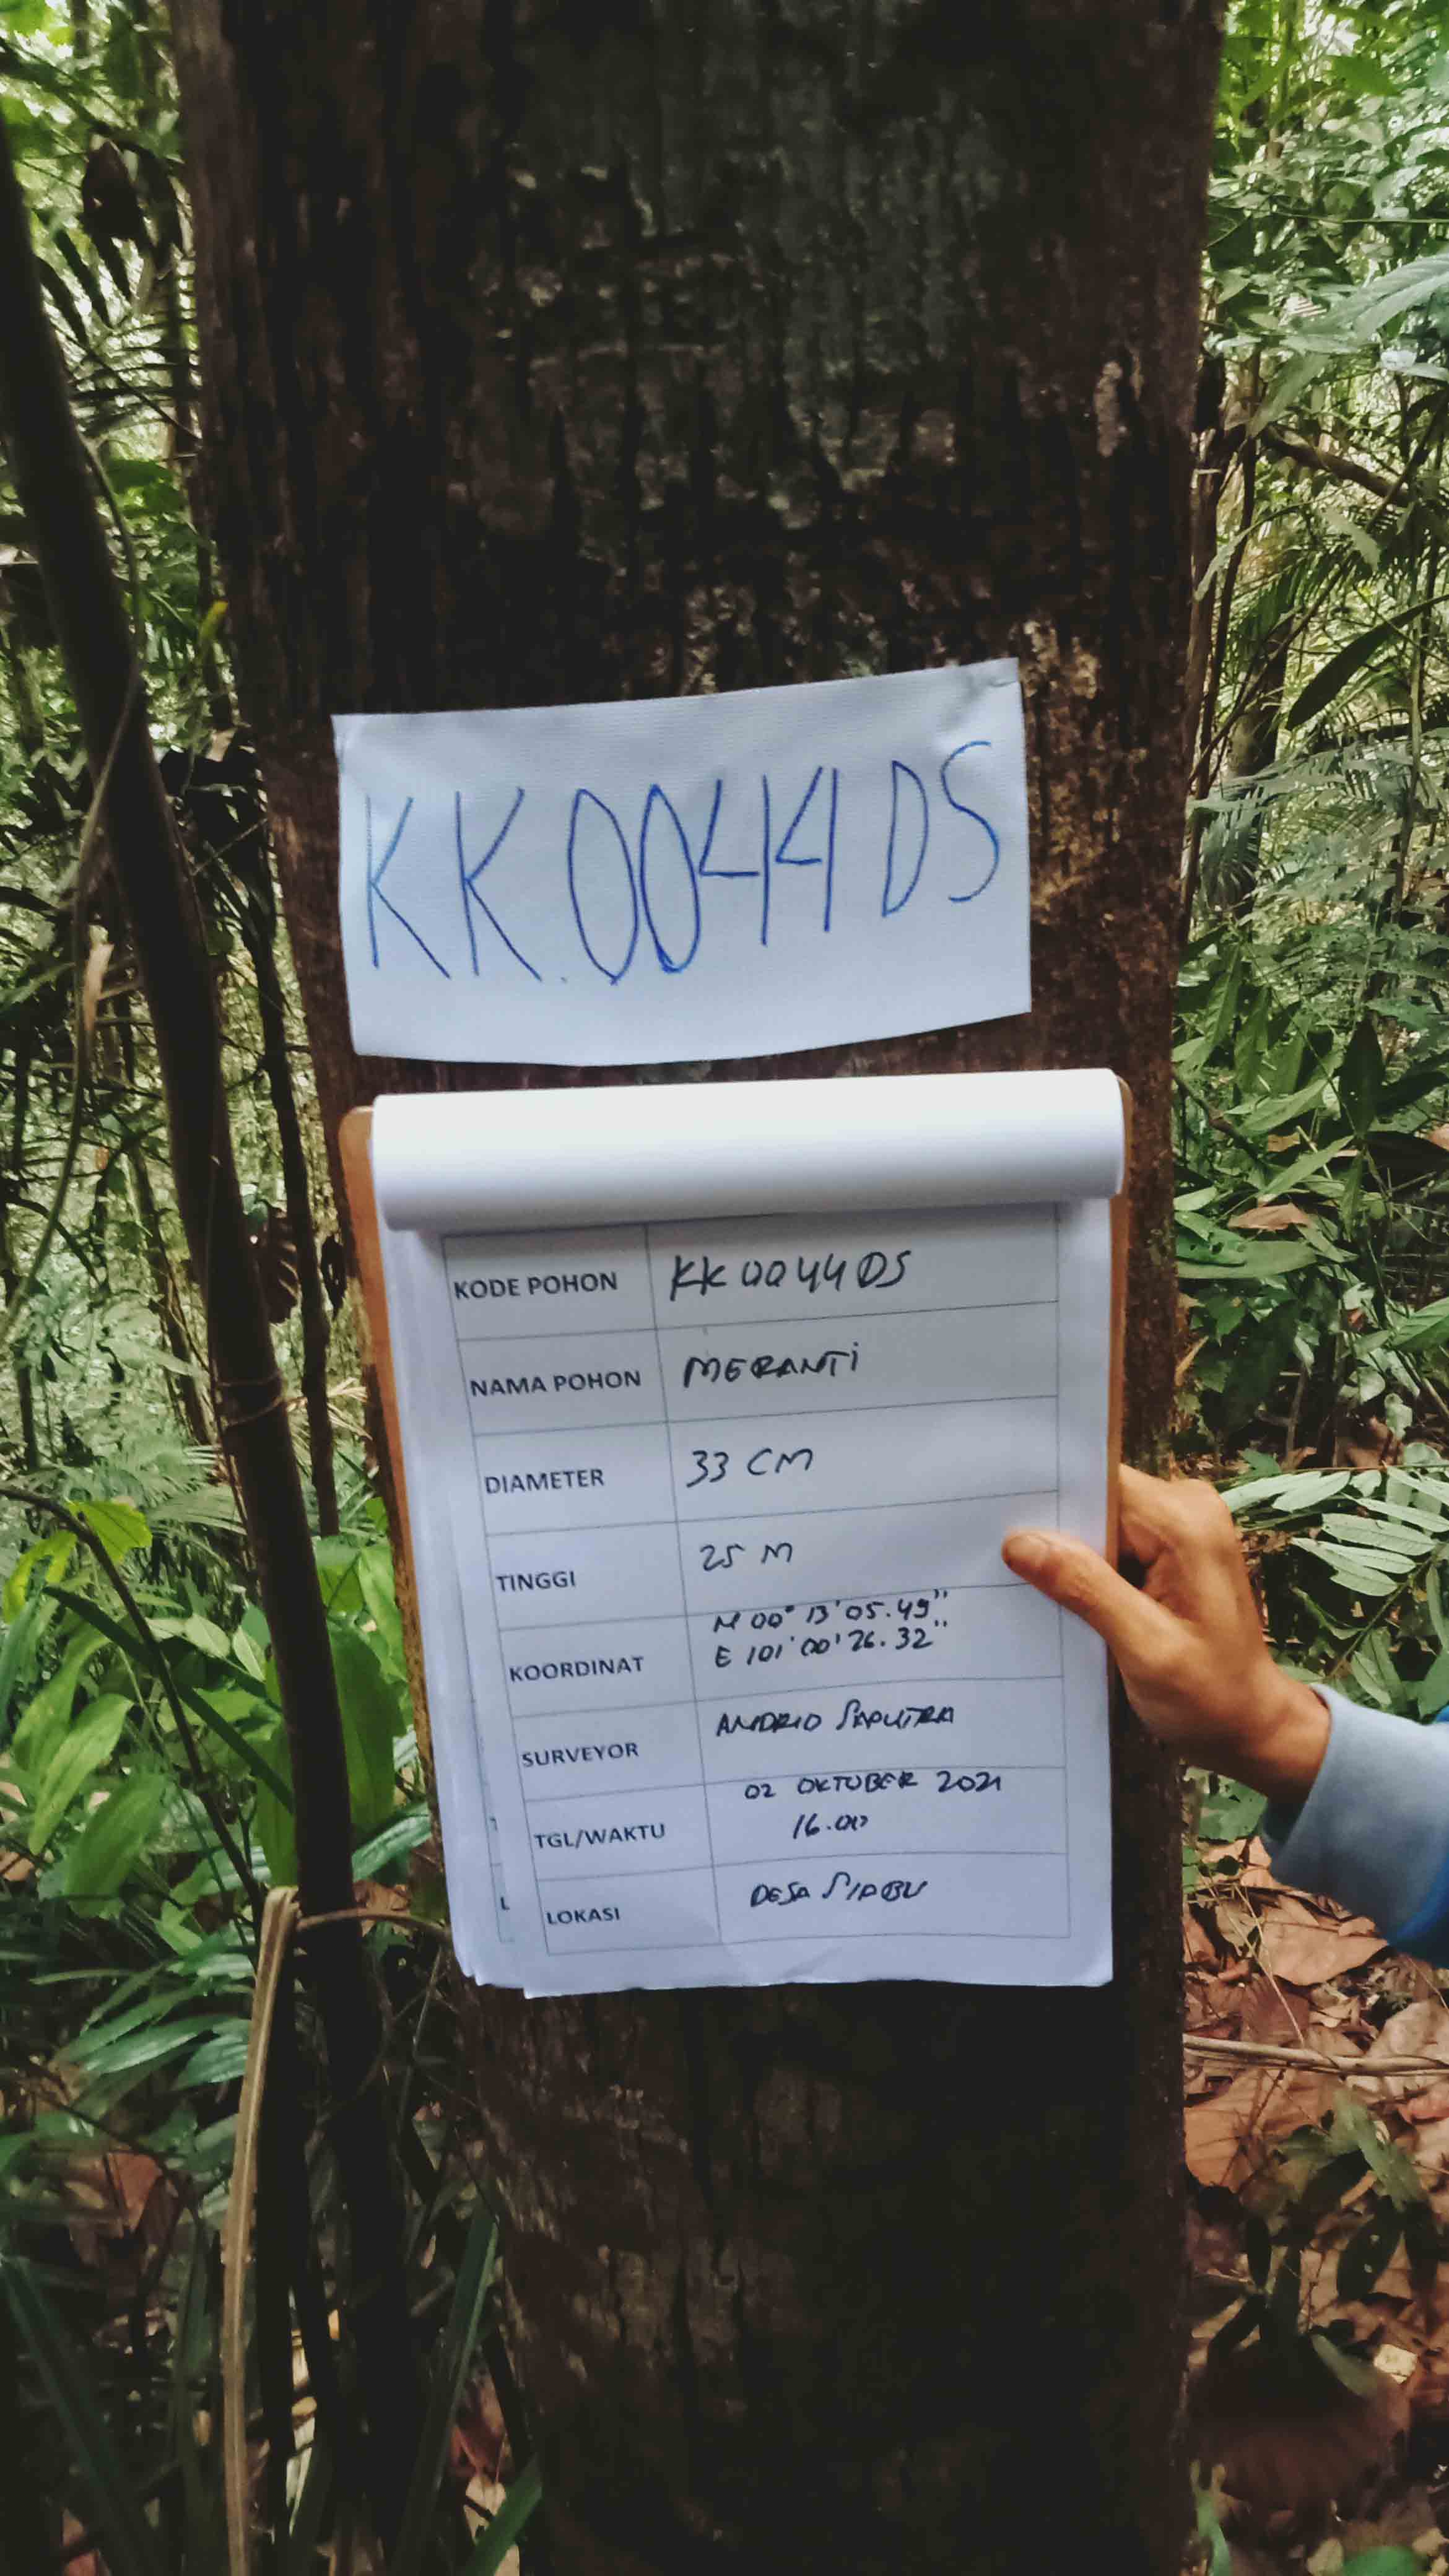 KK.0044DS
KODE POHON KK0044DS
NAMA POHON MERANTi
DIAMETER 33 CM
TINGGI 25 M
KOORDINAT N 00° 13' 05.49"
E 101° 00' 26.32"
SURVEYOR ANDRIO SAPUTRA
TGL/WAKTU 02 OKTOBER 2021
16.00
LOKASI DESA SIABU